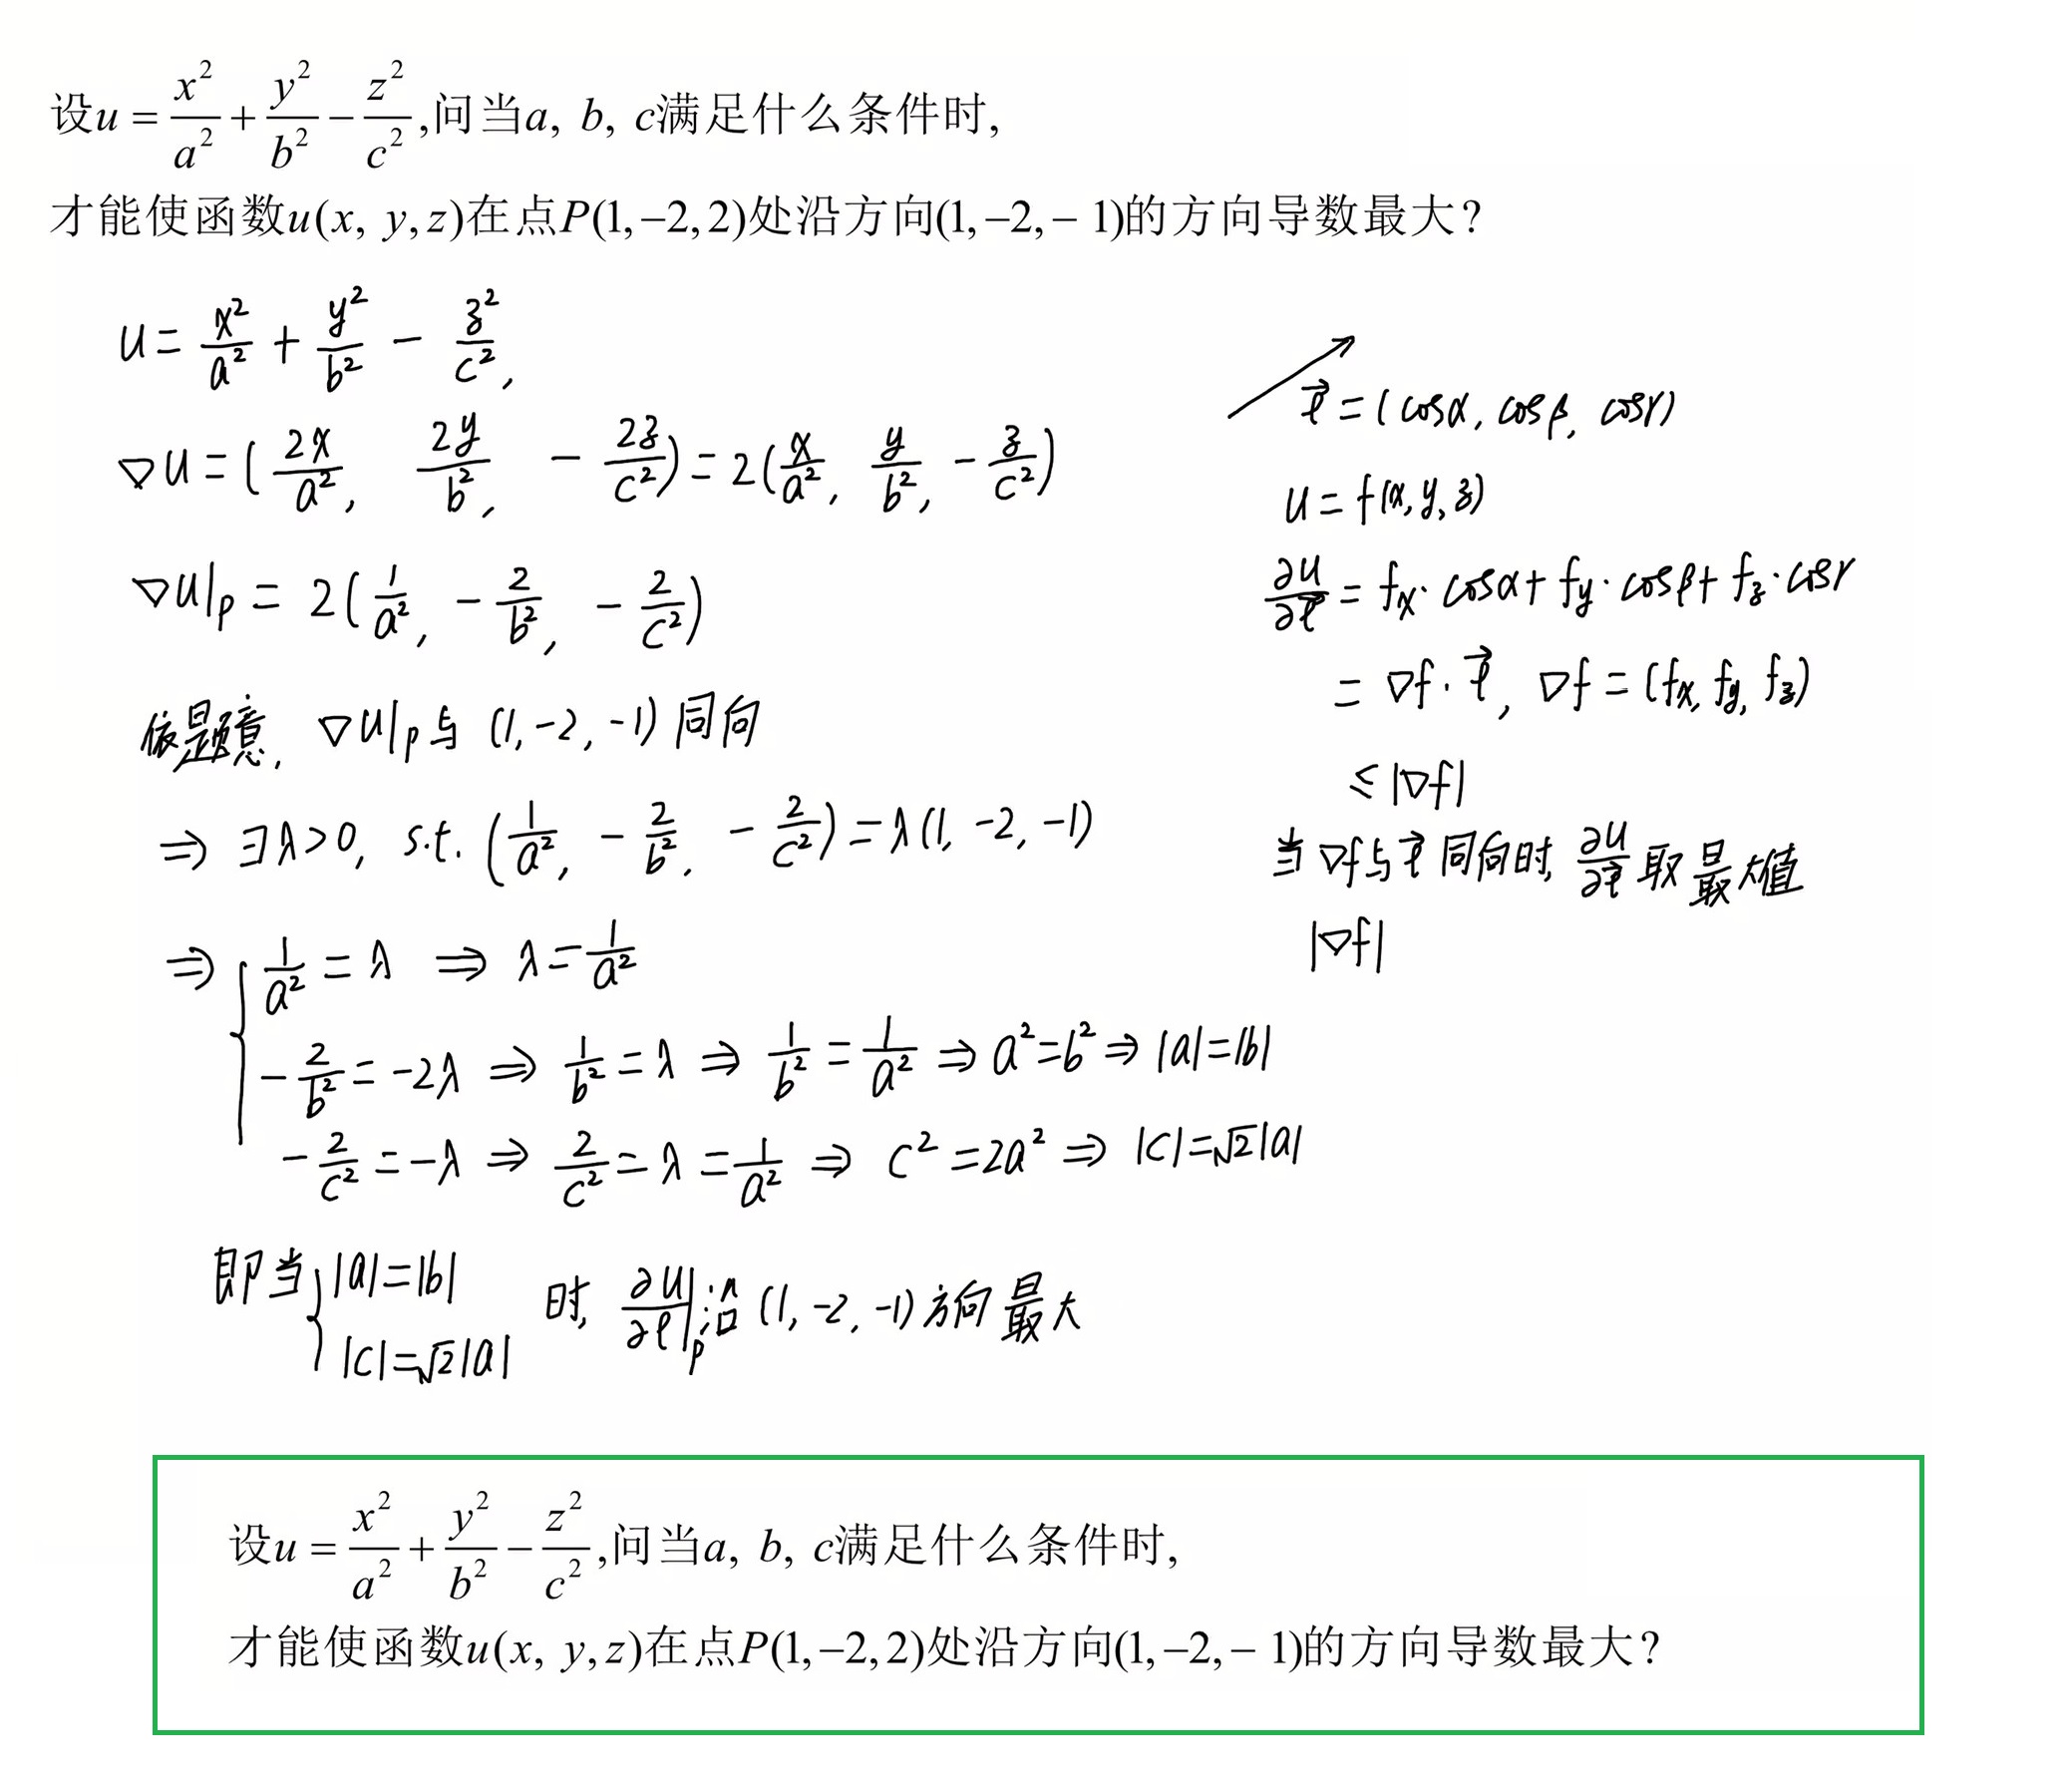 设u = x²/a² + y²/b² − z²/c²,问当a, b, c满足什么条件时,
才能使函数u(x, y,z)在点P(1,−2,2)处沿方向(1,−2,− 1)的方向导数最大?
u = x²/a² + y²/b² − z²/c²,
∇u = (2x/a², 2y/b², −2z/c²) = 2(x/a², y/b², −z/c²)
∇u|p = 2(1/a², −2/b², −2/c²)
依题意, ∇u|p与 (1,−2,−1) 同向
⇒ ∃λ>0, s.t. (1/a², −2/b², −2/c²) = λ(1, −2, −1)
⇒ { 1/a² = λ ⇒ λ = 1/a²
−2/b² = −2λ ⇒ 1/b² = λ ⇒ 1/b² = 1/a² ⇒ a²=b² ⇒ |a|=|b|
−2/c² = −λ ⇒ 2/c² = λ = 1/a² ⇒ c² = 2a² ⇒ |c|=√2|a|
即当 { |a|=|b|
|c|=√2|a|
时, ∂u/∂l|p 沿 (1,−2,−1) 方向最大
l⃗ = (cosα, cosβ, cosγ)
u = f(x,y,z)
∂u/∂l⃗ = fx·cosα + fy·cosβ + fz·cosγ
= ∇f·l⃗, ∇f = (fx, fy, fz)
≤ |∇f|
当∇f与l⃗同向时, ∂u/∂l⃗ 取最大值
|∇f|
设u = x²/a² + y²/b² − z²/c²,问当a, b, c满足什么条件时,
才能使函数u(x, y,z)在点P(1,−2,2)处沿方向(1,−2,− 1)的方向导数最大?